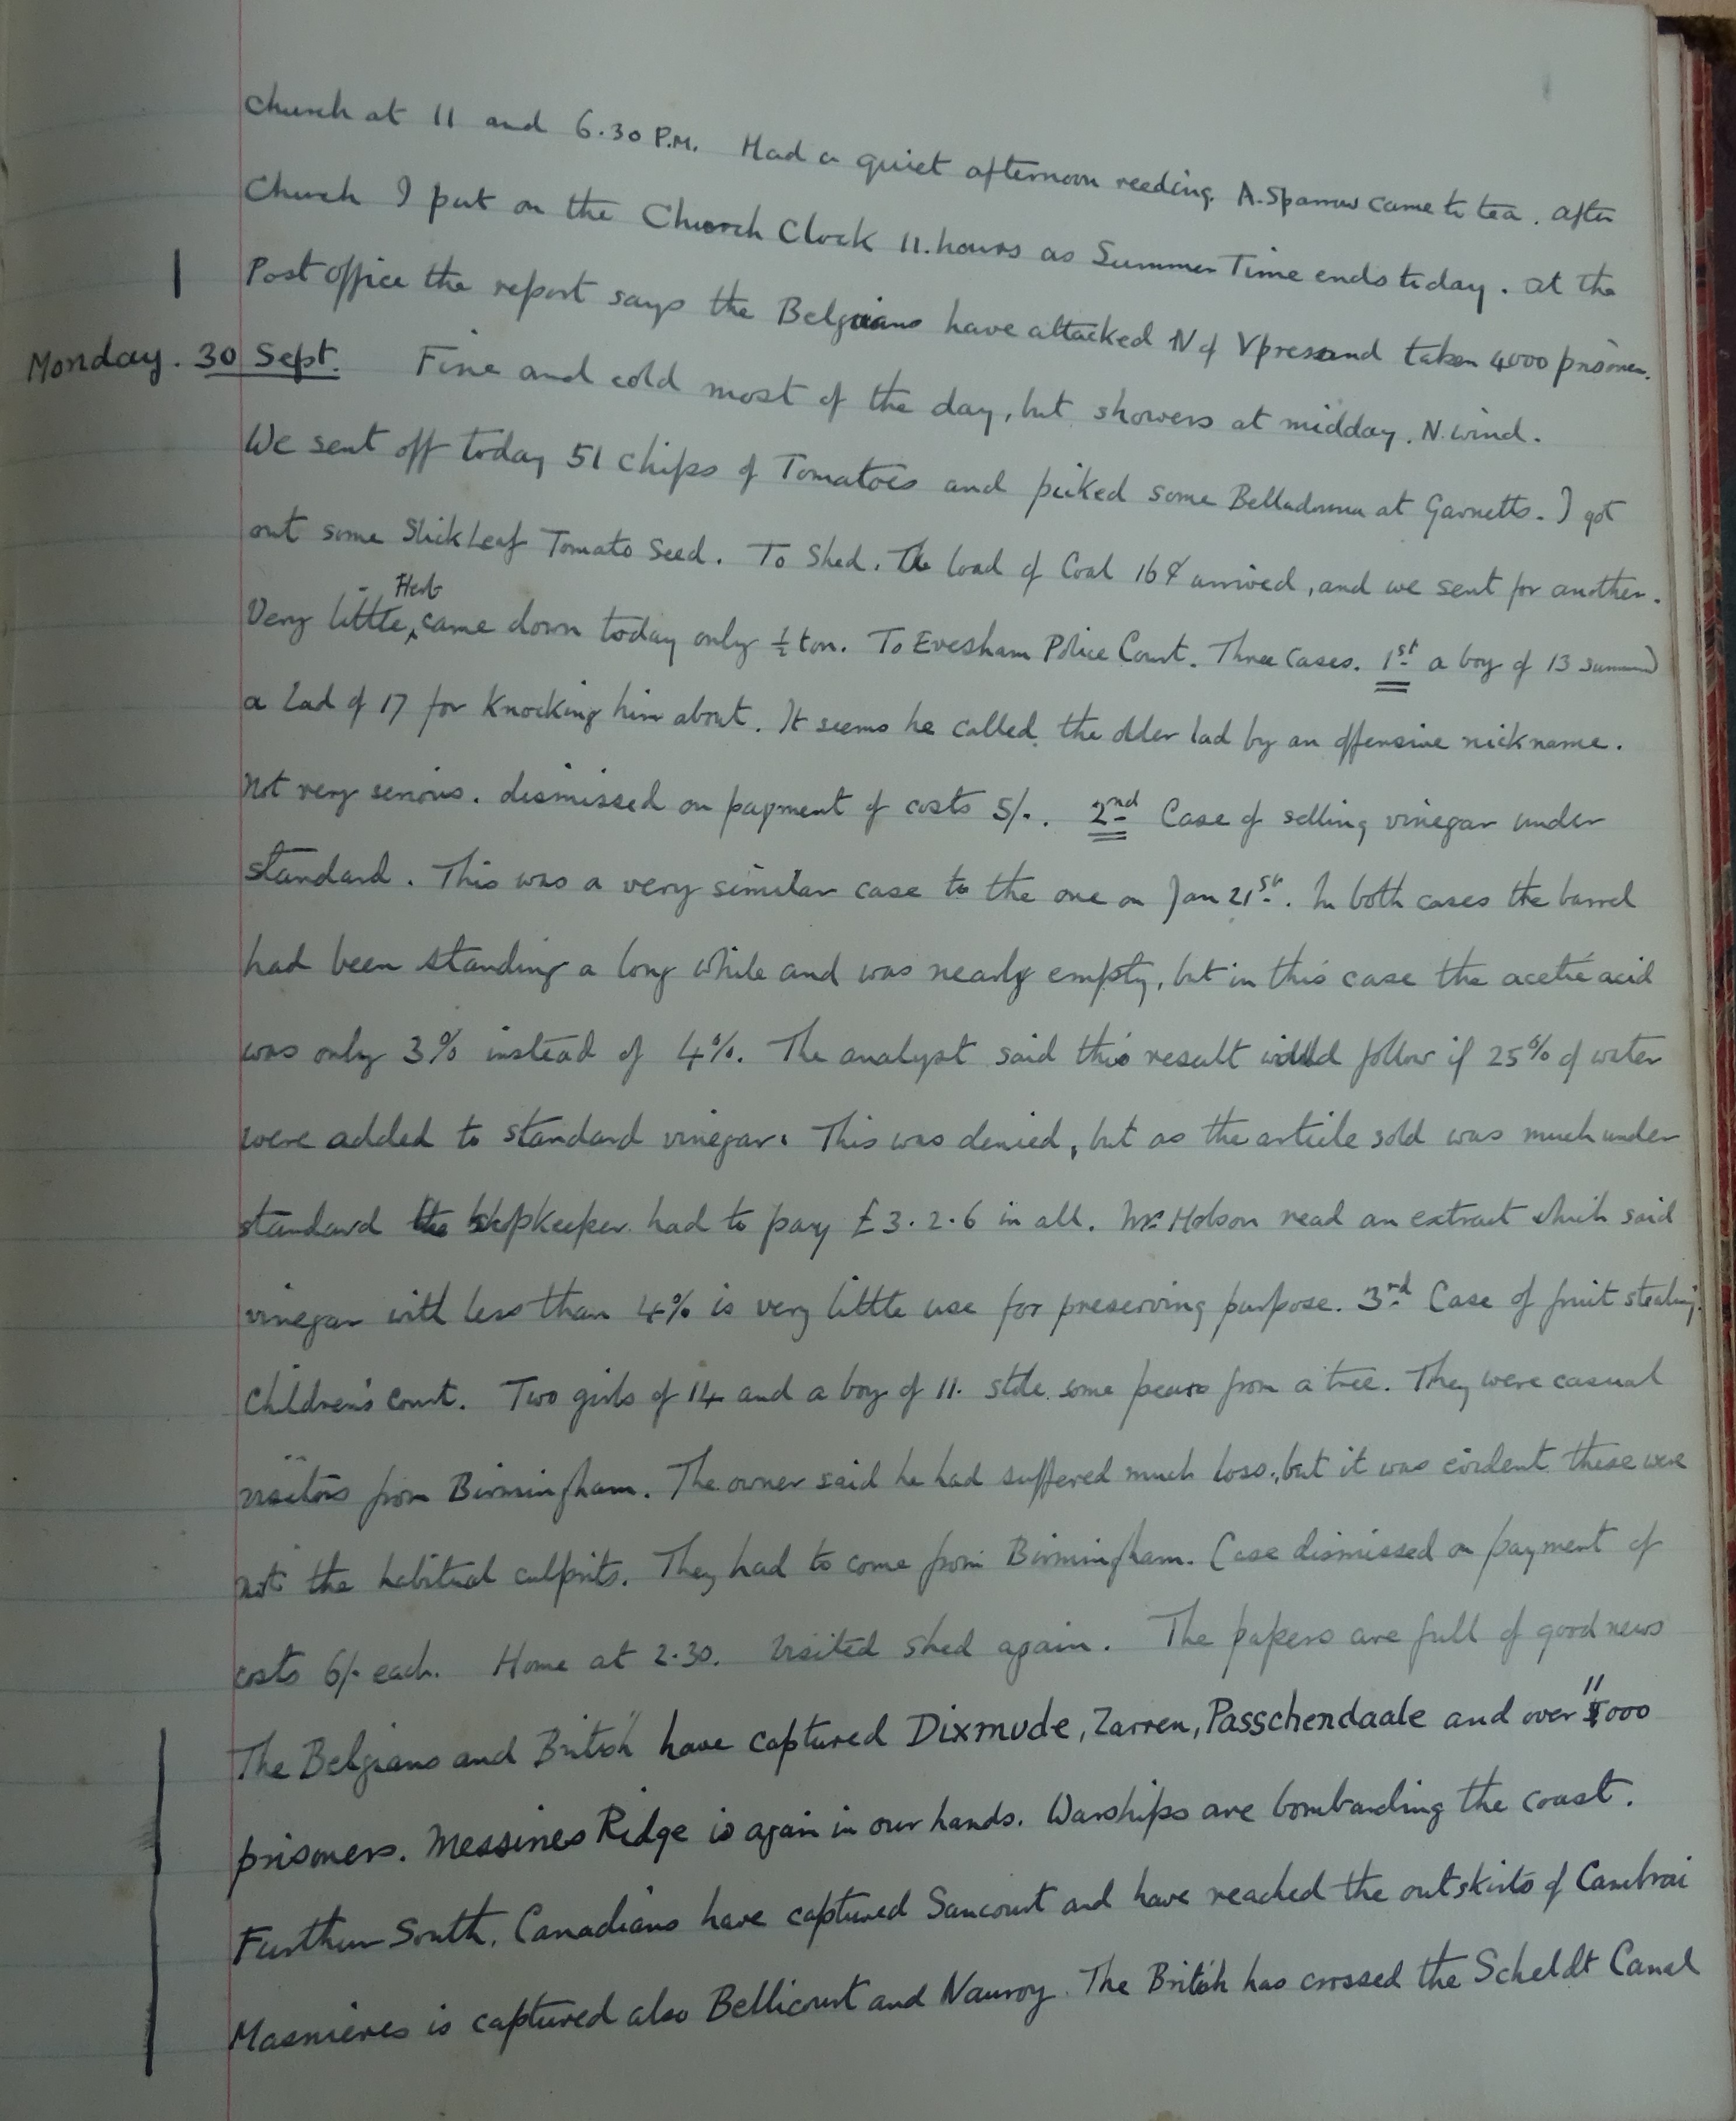 Church at 11 and 6.30 P.M. Had a quiet afternoon reading. A. Sparrow came to tea. after
Church I put on the Church Clock 11. hours as Summer Time ends today. at the
Post office the report says the Belgians have attacked N of Ypres and taken 4000 prisoners.
Monday. 30 Sept. Fine and cold most of the day, but showers at midday. N. wind.
We sent off today 51 chips of Tomatoes and picked some Belladonna at Garnetts. I got
out some Slick Leaf Tomato Seed. To Shed. The load of Coal arrived, and we sent for another.
Very little Herb came down today only ½ ton. To Evesham Police Court. Three cases. 1st a boy of 13 summond
a Lad of 17 for knocking him about. It seems he called the older lad by an offensive nickname.
Not very serious. dismissed on payment of costs 5/-. 2nd Case of selling vinegar under
standard. This was a very similar case to the one on Jan 21st. In both cases the barrel
had been standing a long while and was nearly empty, but in this case the acetic acid
was only 3% instead of 4%. The analyst said this result would follow if 25% of water
were added to standard vinegar. This was denied, but as the article sold was much under
standard the shopkeeper had to pay £3.2.6 in all. Mr Hobson read an extract which said
vinegar with less than 4% is very little use for preserving purpose. 3rd Case of fruit stealing.
Children's Court. Two girls of 14 and a boy of 11. stole some pears from a tree. They were casual
visitors from Birmingham. The owner said he had suffered much loss, but it was evident these were
not the habitual culprits. They had to come from Birmingham. Case dismissed on payment of
costs 6/- each. Home at 2.30. Visited shed again. The papers are full of good news
The Belgians and British have captured Dixmude, Zarren, Passchendaale and over 11000
prisoners. Messines Ridge is again in our hands. Warships are bombarding the coast.
Further South, Canadians have captured Sancourt and have reached the outskirts of Cambrai
Masnieres is captured also Bellicourt and Nauroy. The British has crossed the Scheldt Canal